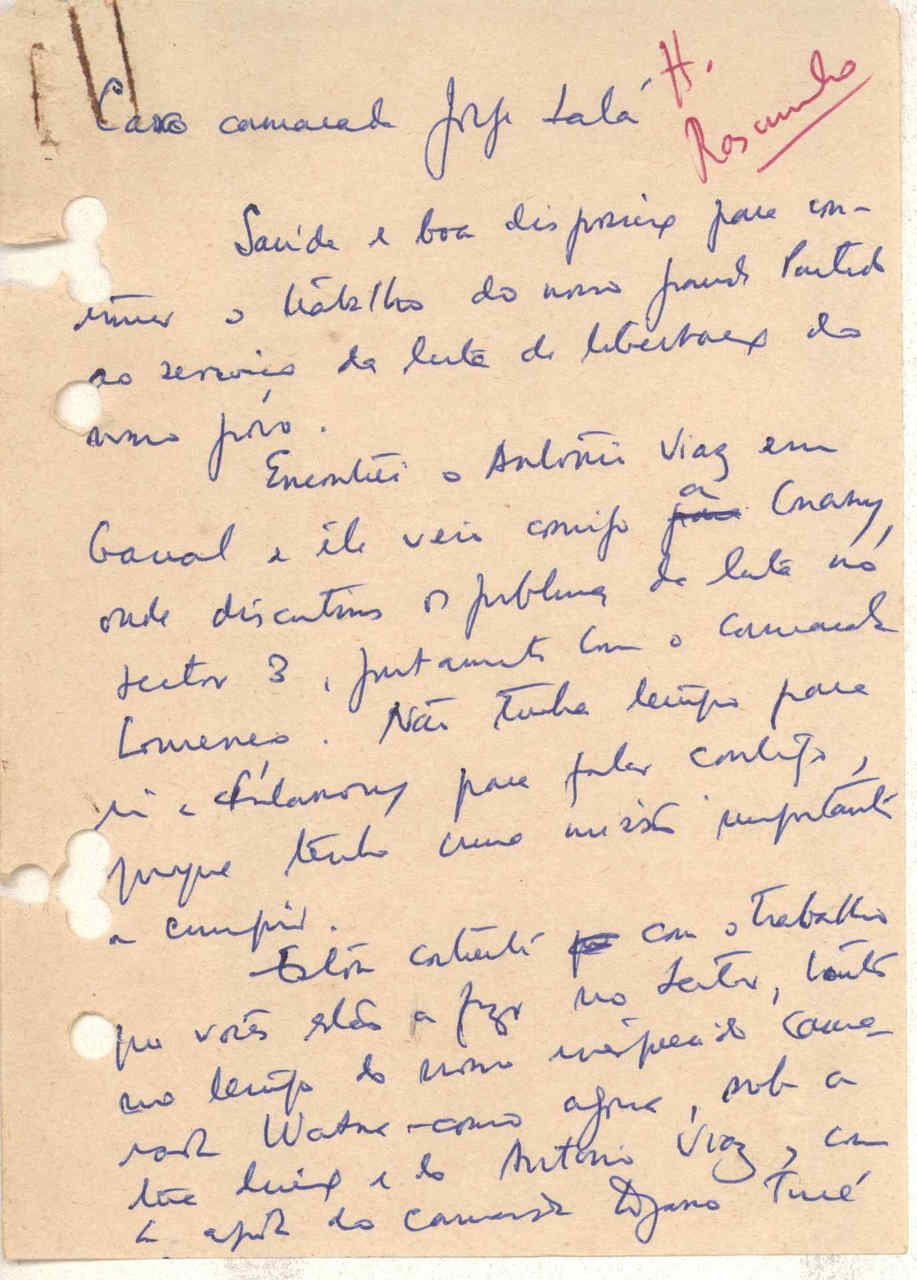 Caro camarada Jorge Lalá
H.
Rascunho
Saúde e boa disposição para con-
tinuar o trabalho do nosso grande Partido
ao serviço da luta de libertação do
nosso pôvo.
Encontrei o António Viaz em
Gaoual e êle veio comigo a Conakry,
onde discutimos os problemas da luta no
sector 3, juntamente com o camarada
Lourenço. Não tenho tempo para
ir a para falar contigo,
porque tenho uma missão importante
a cumprir.
Estou contente com o trabalho
que vocês estão a fazer no sector, tanto
no tempo do nosso inesquecido cama-
rada Watna como agora, sob a
tua direcção e do António Viaz, com
o apoio do camarada Turé